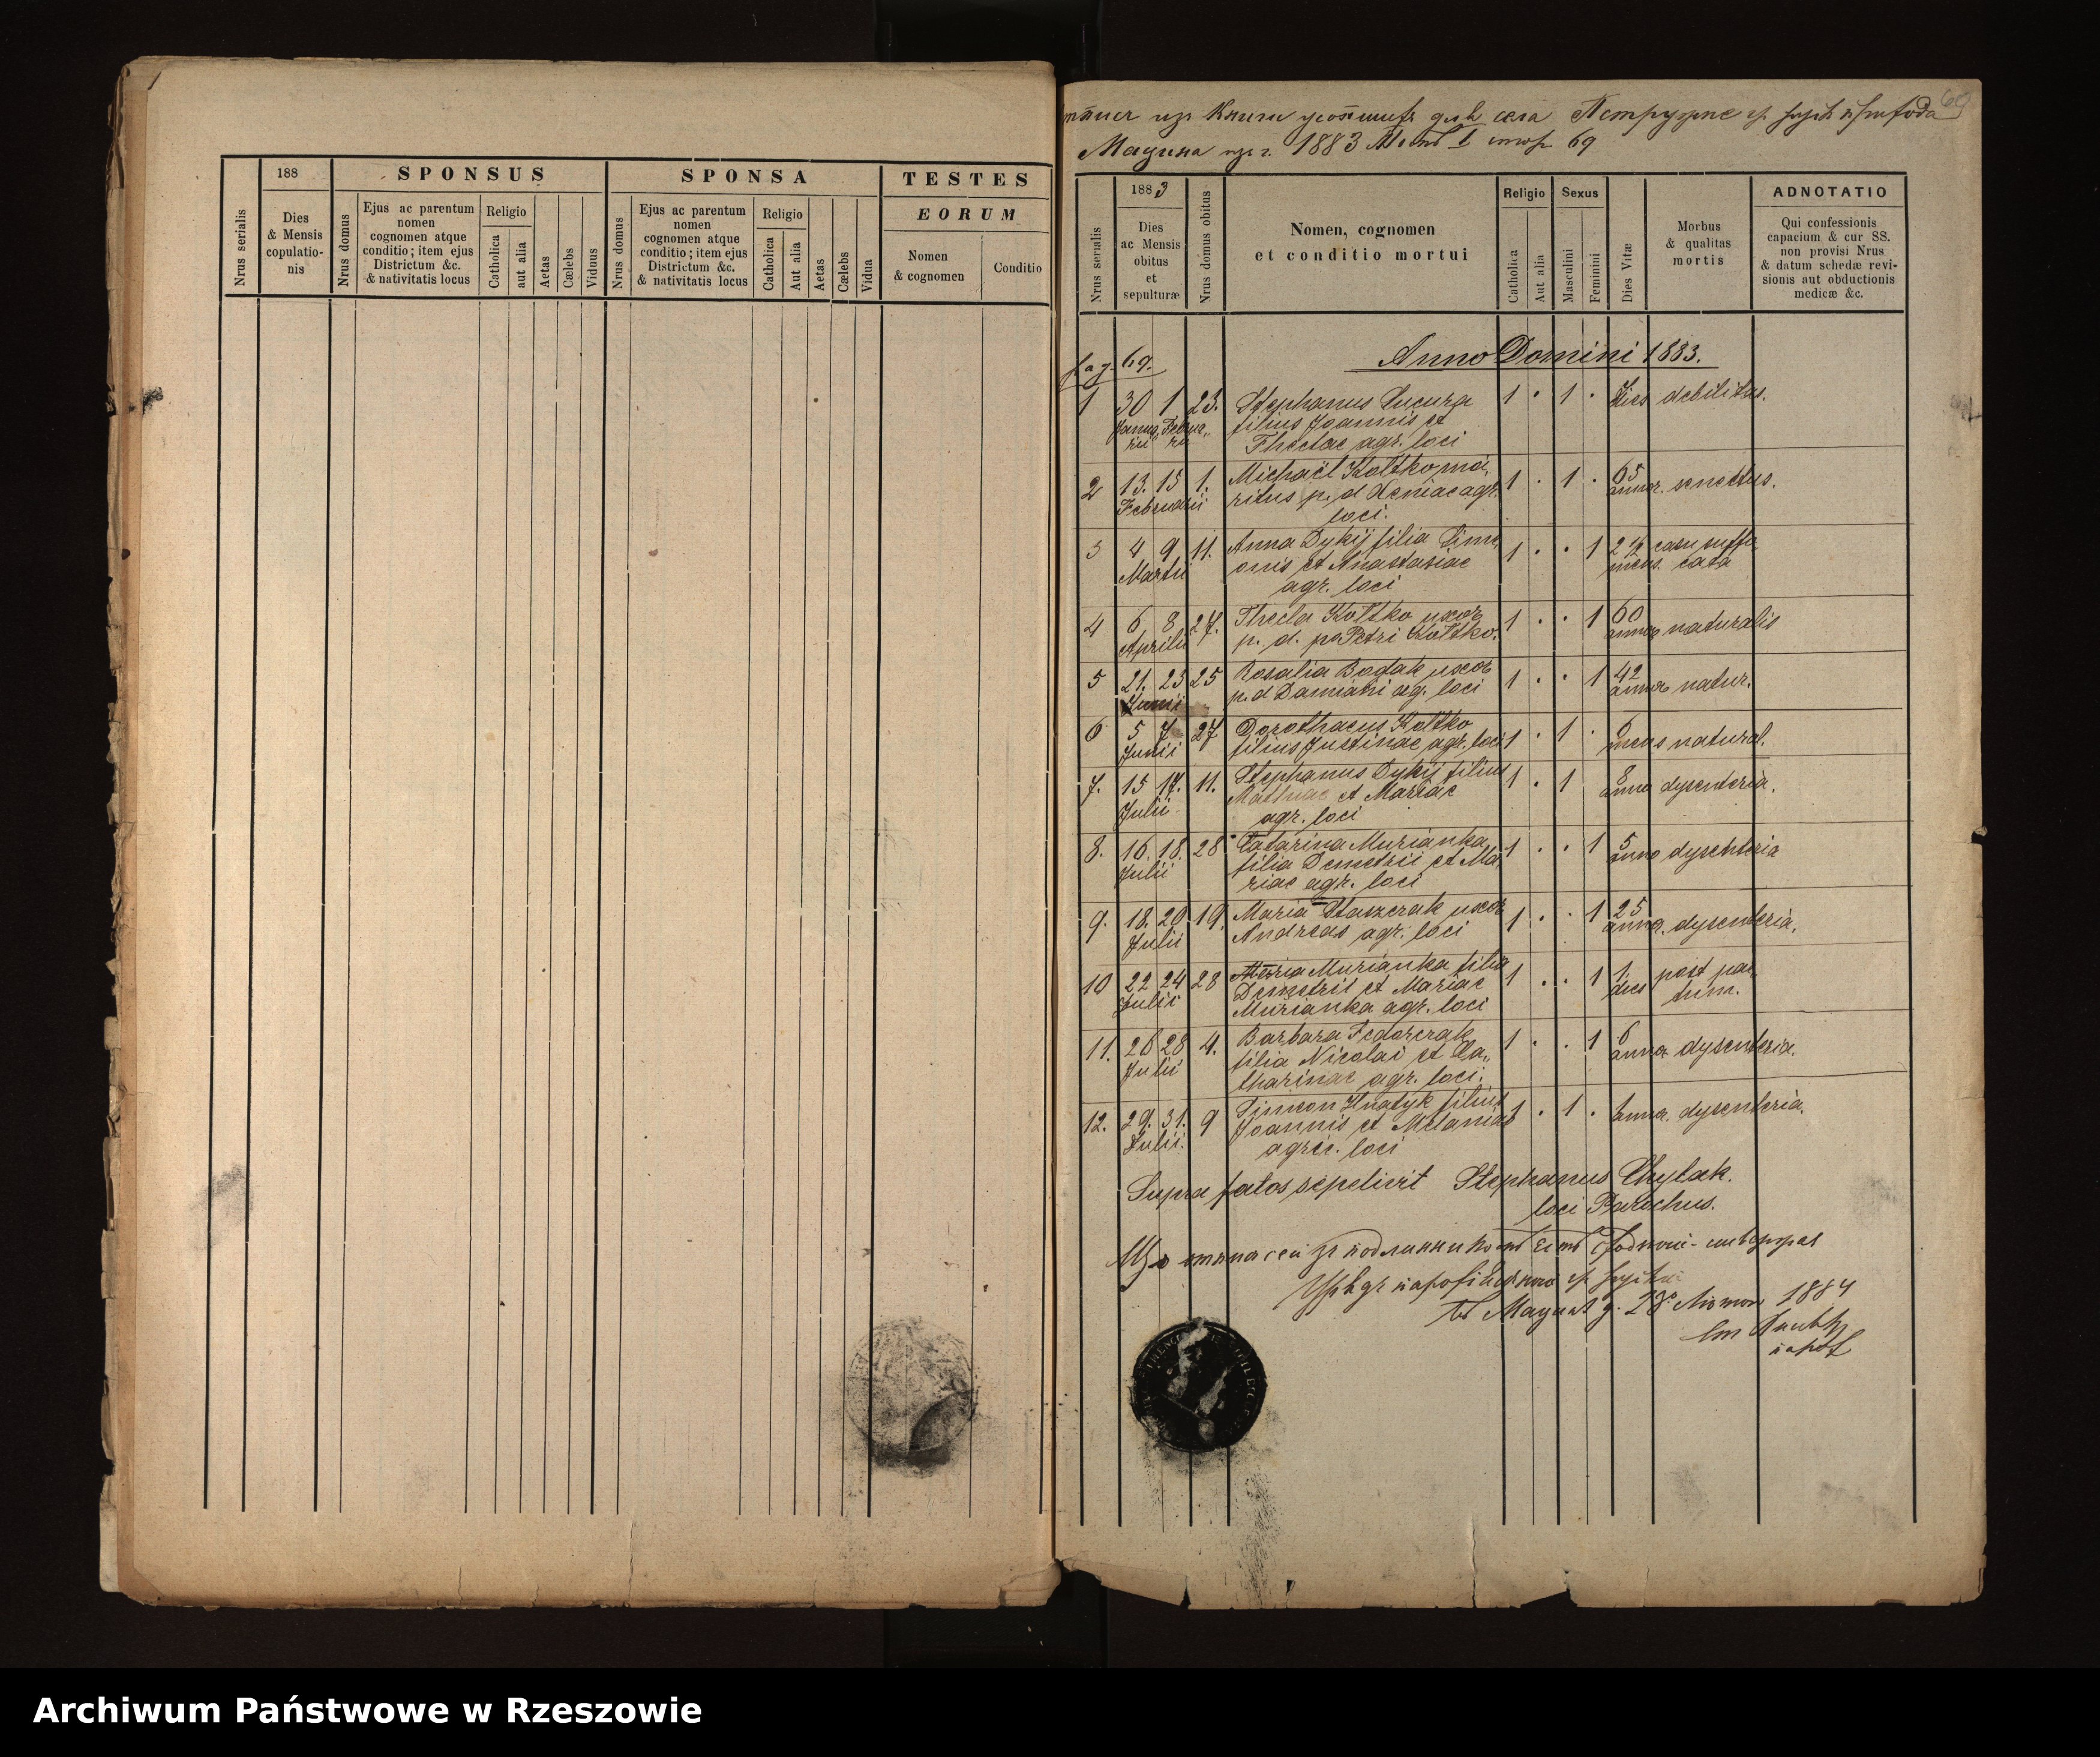 188
SPONSUS
SPONSA
TESTES
EORUM
Nrus serialis
Dies
& Mensis
copulatio-
nis
Nrus domus
Ejus ac parentum
nomen
cognomen atque
conditio; item ejus
Districtum &c.
& nativitatis locus
Religio
Catholica
aut alia
Aetas
Cœlebs
Viduus
Nrus domus
Ejus ac parentum
nomen
cognomen atque
conditio; item ejus
Districtum &c.
& nativitatis locus
Religio
Catholica
Aut alia
Aetas
Cœlebs
Vidua
Nomen
& cognomen
Conditio
69
1883 69
Nrus serialis
1883
Dies
ac Mensis
obitus
et
sepulturæ
Nrus domus obitus
Nomen, cognomen
et conditio mortui
Religio
Catholica
Aut alia
Sexus
Masculini
Feminini
Dies Vitæ
Morbus
& qualitas
mortis
ADNOTATIO
Qui confessionis
capacium & cur SS.
non provisi Nrus
& datum schedæ revi-
sionis aut obductionis
medicæ &c.
Anno Domini 1883.
pag. 69.
1 30 1 23. Stephanus 1 . 1 . debilitas.
filius Joannis et
Theclae agr. loci
2 13. 15 1. Michaël Kottko ma- 1 . 1 . 65 senectus.
Februarii ritus p. d Xeniae agr.
loci.
3 4 9 11. Anna Dykij filia Sime- 1 . . 1 2 1/2 casu suffo-
Martii onis et Anastasiae mens. cata
agr. loci
4 6 8 27. Thecla Kottko uxor 1 . . 1 60 naturalis
Aprilis p. d. Petri Kottko.
5 21. 23 25 Rosalia Bogdak uxor 1 . . 1 42 natur.
Junii p. d Damiani ag. loci
6 5 7 27 Dorothaeus Kottko 1 . 1 . 6 natural.
Junii filius Justinae agr. loci mens
7. 15 17. 11. Stephanus Dykij filius 1 . 1 8 dysenteria.
Julii Mathiae et Mariae
agr. loci
8. 16. 18. 28 Catarina Murianka 1 . . 1 5 dysenteria
Julii filia Demetrii et Ma-
riae agr. loci
9. 18. 20 19. Maria Staszczak uxor 1 . . 1 25 dysenteria.
Julii Andreas agr. loci
10 22 24 28 Maria Murianka filia 1 . . 1 1. post par-
Julii Demetrii et Mariae dies tum.
Murianka agr. loci
11. 26 28 4. Barbara Fedorczak 1 . . 1 6 dysenteria.
Julii filia Nicolai et Ca-
tharinae agr. loci.
12. 29. 31. 9 Simeon Hnatyk filius 1 . 1 . dysenteria.
Julii. Joannis et Melaniae
agric. loci
Supra fatos sepelivit Stephanus Chylak.
loci Parochus.
1884
Archiwum Państwowe w Rzeszowie